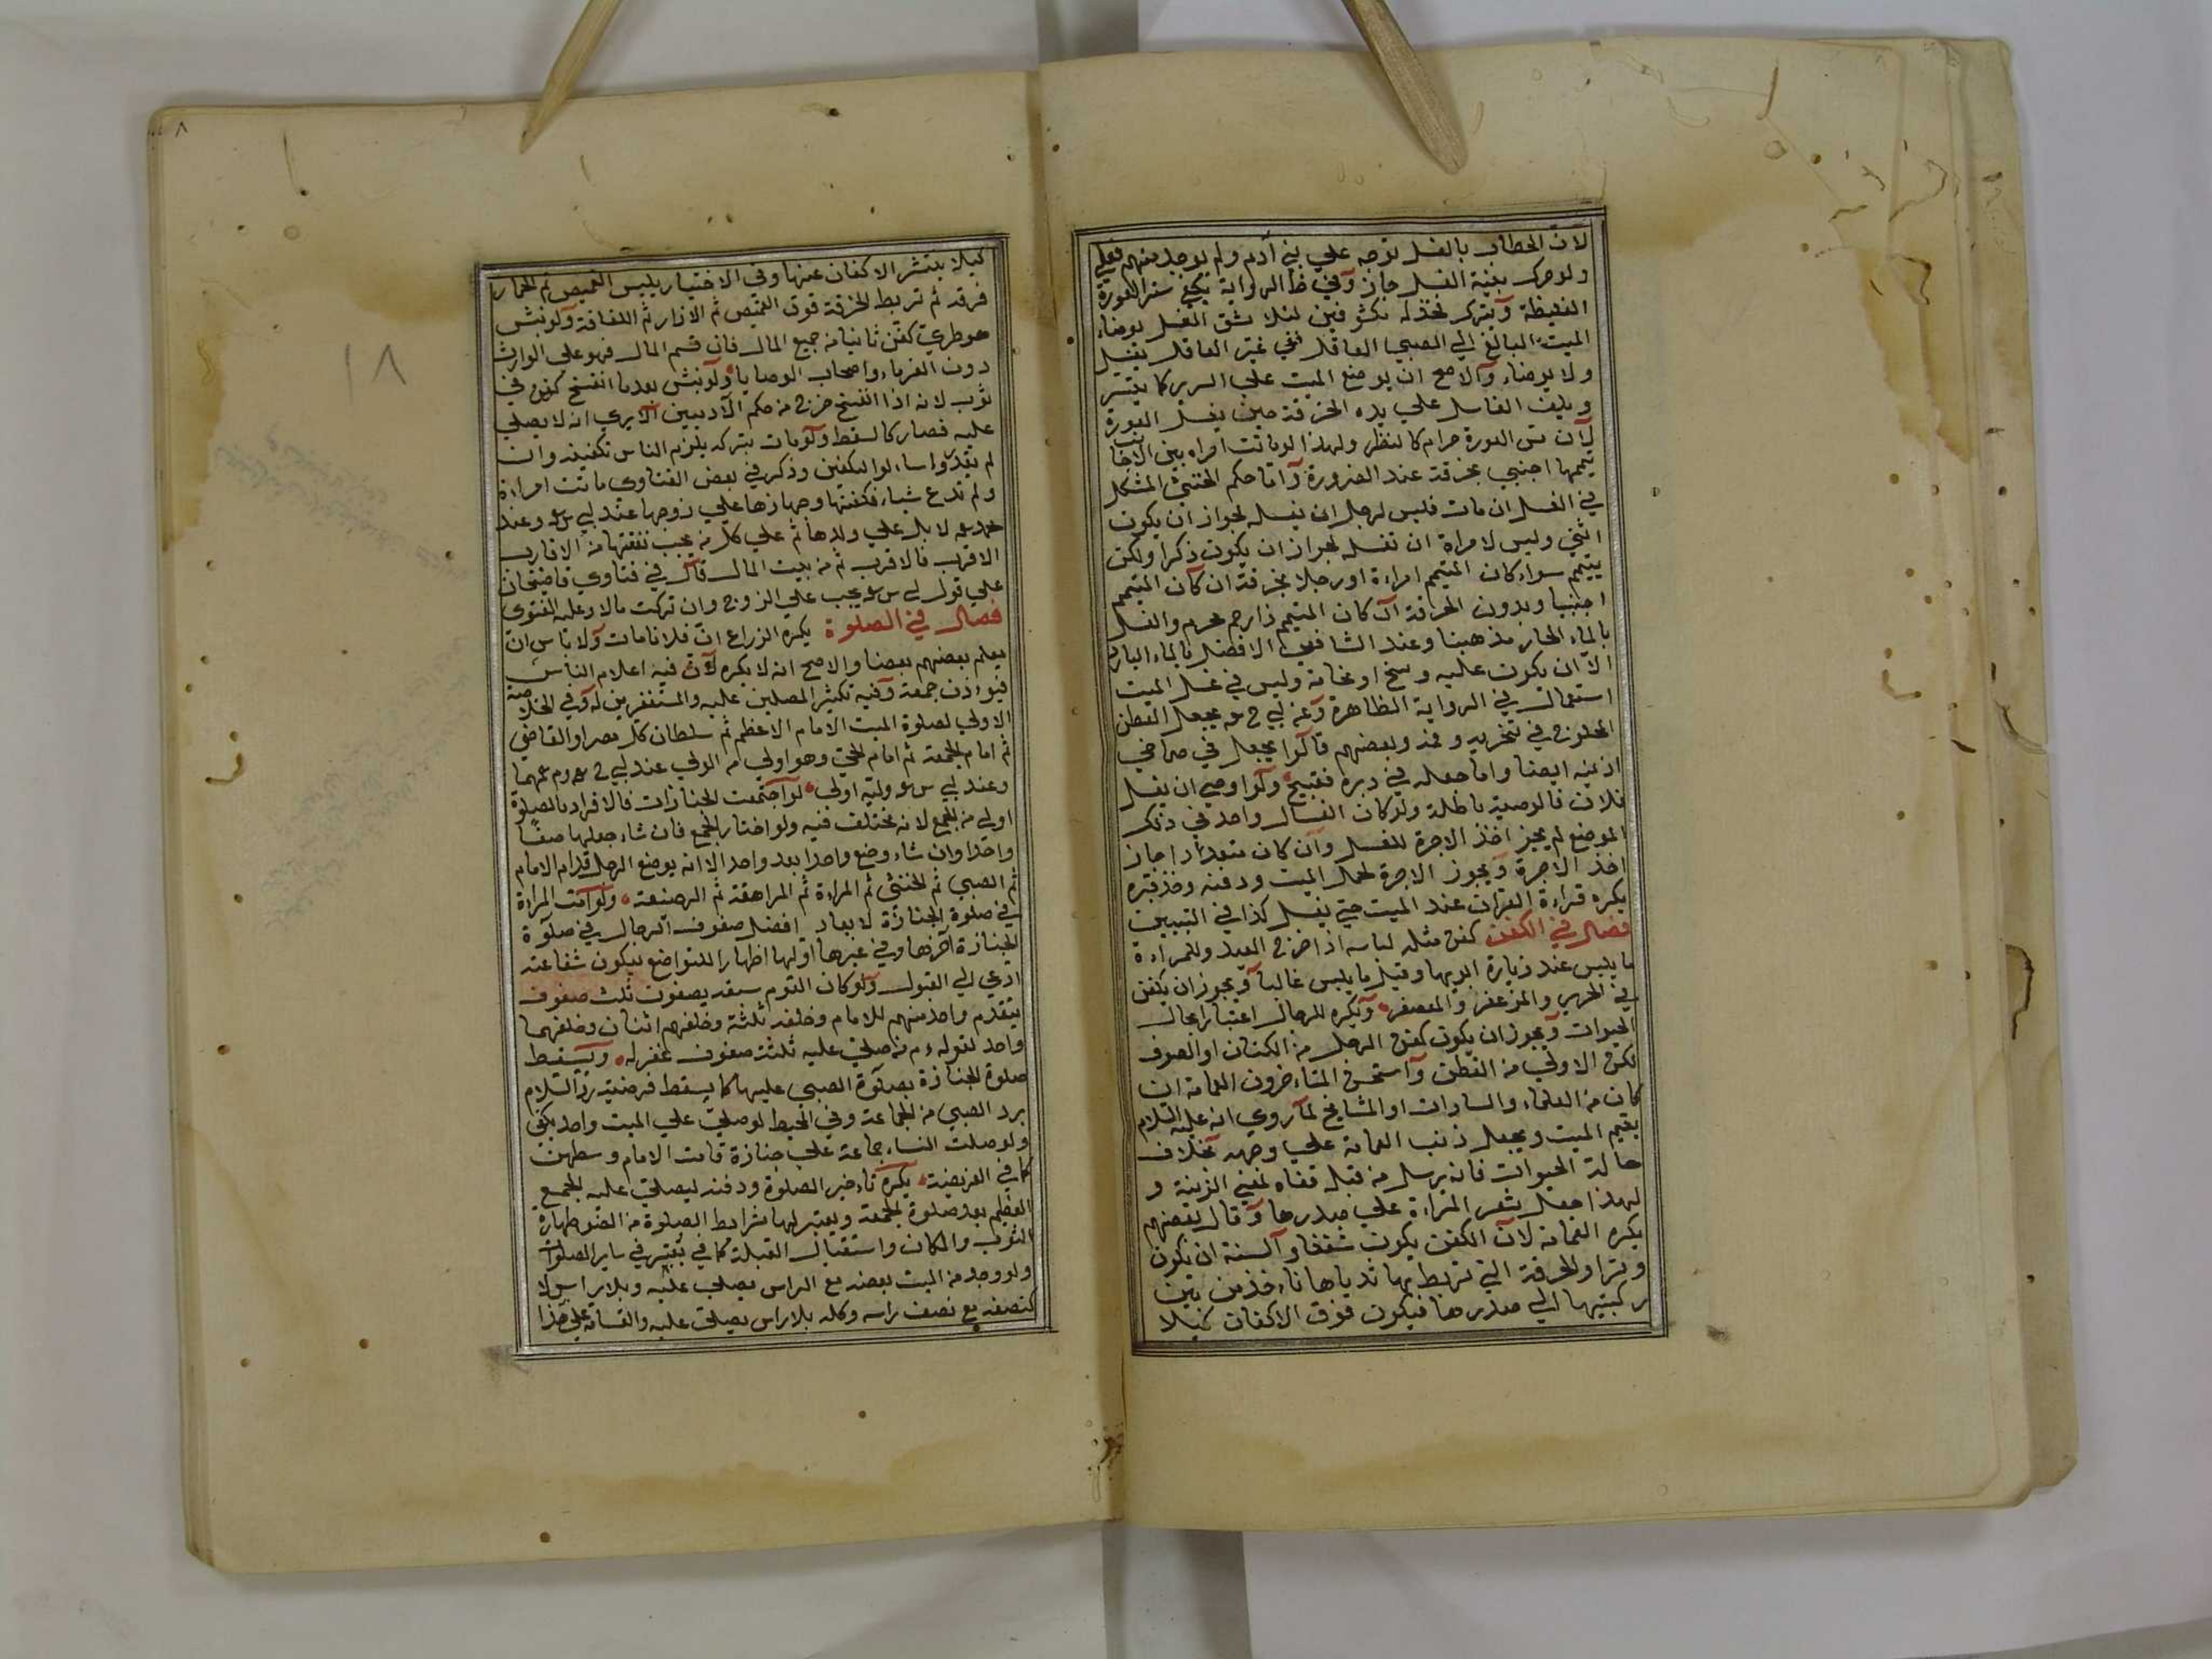 لان الخطاب بالغسل توجه علي بني آدم ولم يوجد منهم فعل
ولو حرك بنية الغسل جاز وفي ظ الرواية يكفي ستر العورة
الغليظة ويترك فخذاه مكشوفتين لئلا يشق الغسل يوضاء
الميت البالغ الي الصبي العاقل ففي غير العاقل يغسل
ولا يوضاء والاصح ان يوضع الميت علي السرير كما تيسر
ويلف الغاسل علي يده الخرقة حين يغسل العورة
لان مس العورة حرام كالنظر ولهذا لو ماتت امراه بين الاجانب
تيممها اجنبي بخرقة عند الضرورة واما حكم الخنثي المشكل
في الغسل ان مات فليس لرجل ان يغسله لجواز ان يكون
انثي وليس لامراة ان تغسله لجواز ان يكون ذكرا ولكن
ييمم سواء كان الميمم امراءة او رجلا بخرقة ان كان الميمم
اجنبيا وبدون الخرقة ان كان الميمم ذا رحم محرم والغسل
بالماء الحار مذهبنا وعند الشافعي الافضل بالماء البارد
الا ان يكون عليه وسخ او نخامة وليس في غسل الميت
استعمال في الرواية الظاهرة وعن ابي ح رح يجعل القطن
المحلوج في منخريه وفمه وبعضهم قالوا يجعل في صماخي
اذنيه ايضا واما جعله في دبره فقبيح ولو اوصي ان يغسل
فلان فالوصية باطلة ولو كان الغسال واحد في ذلك
الموضع لم يجز اخذ الاجرة للغسل وان كان متعددا جاز
اخذ الاجرة ويجوز الاجرة لحمل الميت ودفنه وحفر قبره
يكره قراءة القران عند الميت حتي يغسل كذا في التبيين
فصل في الكفن كفن مثله لباسه اذا خرج العيد وللمراءة
ما يلبس عند زيارة ابويها وقيل ما يلبس غالبا ويجوز ان يكفن
في الحرير والمزعفر والمعصفر ويكره للرجال اعتبارا بحال
الحيوات ويجوز ان يكون كفن الرجل من الكتان او الصوف
لكن الاولي من القطن واستحسن المتاءخرون العمامة ان
كان من العلماء والسادات او المشايخ لما روي انه عليه السلام
يعمم الميت ويجعل ذنب العمامة علي وجهه بخلاف
حالة الحيوات فانه يرسل من قبل قفاه لمعني الزينة و
لهذا جعل شعر المراءة علي صدرها وقال بعضهم
يكره العمامة لان الكفن يكون شفعا والسنة ان يكون
وترا والخرقة التي تربط بها ثدياها تاءخذ من بين
ركبتيها الي صدرها فيكون فوق الاكفان كيلا
كيلا ينتشر الاكفان عنها وفي الاختيار يلبس القميص ثم الخمار
فوقه ثم تربط الخرقة فوق القميص ثم الازار ثم اللفافة ولو نبش
هو طري كفن ثانيا من جميع المال فان قسم المال فهو علي الوارث
دون الغرماء واصحاب الوصايا ولو نبش بعد ما انفسخ كفن في
ثوب لانه اذا انفسخ خرج من حكم الآدميين الا يري انه لا يصلي
عليه فصار كالسقط ولو مات بتركه يلزم الناس تكفينه وان
لم يقدروا سالوا ليكفن وذكر في بعض الفتاوي ماتت امراءة
ولم تدع شياء فكفنها وجهازها علي زوجها عند ابي س رح وعند
محمد رح لا بل علي ولدها ثم علي كل من يجب نفقتها من الاقارب
الاقرب فالاقرب ثم من بيت المال قال في فتاوي قاضيخان
علي قول ابي س رح يجب علي الزوج وان تركت مالا وعليه الفتوي
فصل في الصلوة يكره النداء ان فلانا مات ولا باس ان
يعلم بعضهم بعضا والاصح انه لا يكره لان فيه اعلام الناس
فيوءذن جمعة وفيه تكثير المصلين عليه والمستغفرين له وفي الخلاصة
الاولي لصلوة الميت الامام الاعظم ثم سلطان كل مصر او القاضي
ثم امام الجمعة ثم امام الحي وهو اولي من الولي عند ابي ح رح وم رحمهما
وعند ابي س رح وليه اولي لو اجتمعت الجنازات فالافراد بالصلوة
اولي من الجمع لانه مختلف فيه ولو اختار الجمع فان شاء جعلها صفا
واحدا وان شاء وضع واحدا بعد واحد الا انه يوضع الرجل قدام الامام
ثم الصبي ثم الخنثي ثم المراءة ثم المراهقة ثم الرضيعة ولو امت المراءة
في صلوة الجنازة لا يعاد افضل صفوف الرجال في صلوة
الجنازة آخرها وفي غيرها اولها اظهارا للتواضع ليكون شفاعته
ادعي الي القبول ولو كان القوم سبعة يصفون ثلث صفوف
يتقدم واحد منهم للامام وخلفه ثلثة وخلفهم اثنان وخلفهما
واحد لقوله ءم من صلي عليه ثلثة صفوف غفر له ويسقط
صلوة الجنازة بصلوة الصبي عليها كما يسقط فرضية رد السلام
برد الصبي من الجماعة وفي المحيط لو صلي علي الميت واحد يكفي
ولو صلت النساء جماعة علي جنازة قامت الامام وسطهن
كما في الفريضة يكره تاءخير الصلوة ودفنه ليصلي عليه الجمع
العظيم بعد صلوة الجمعة ويعتبر لها شرايط الصلوة من الطهارة
الثوب والمكان واستقبال القبلة كما في يعتبر في ساير الصلوات
ولو وجد من الميت بعضه مع الراس يصلي عليه وبلا راس لا
كنصفه مع نصف راسه وكله بلا راس يصلي عليه والقسامة علي هذا
١٨
٨